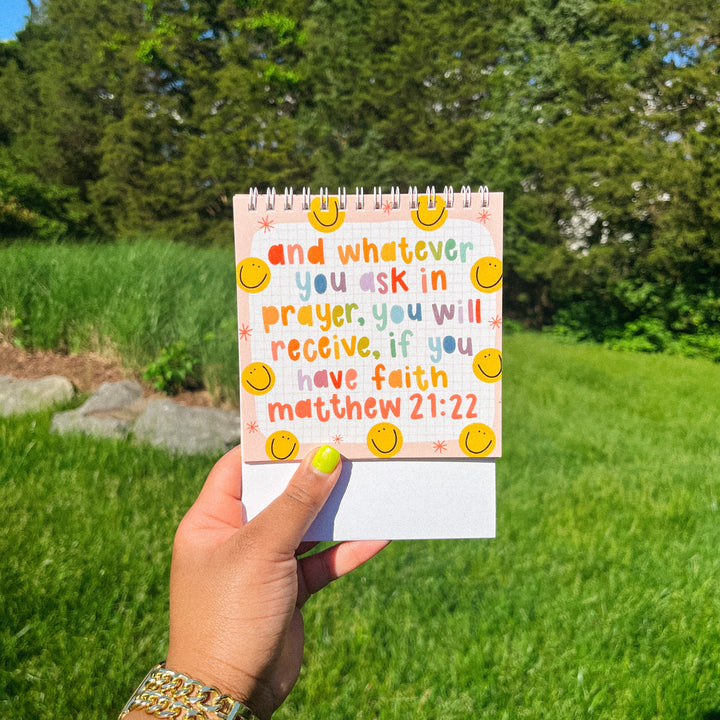 and whatever
you ask in
prayer, you will
receive, if you
have faith
matthew 21:22